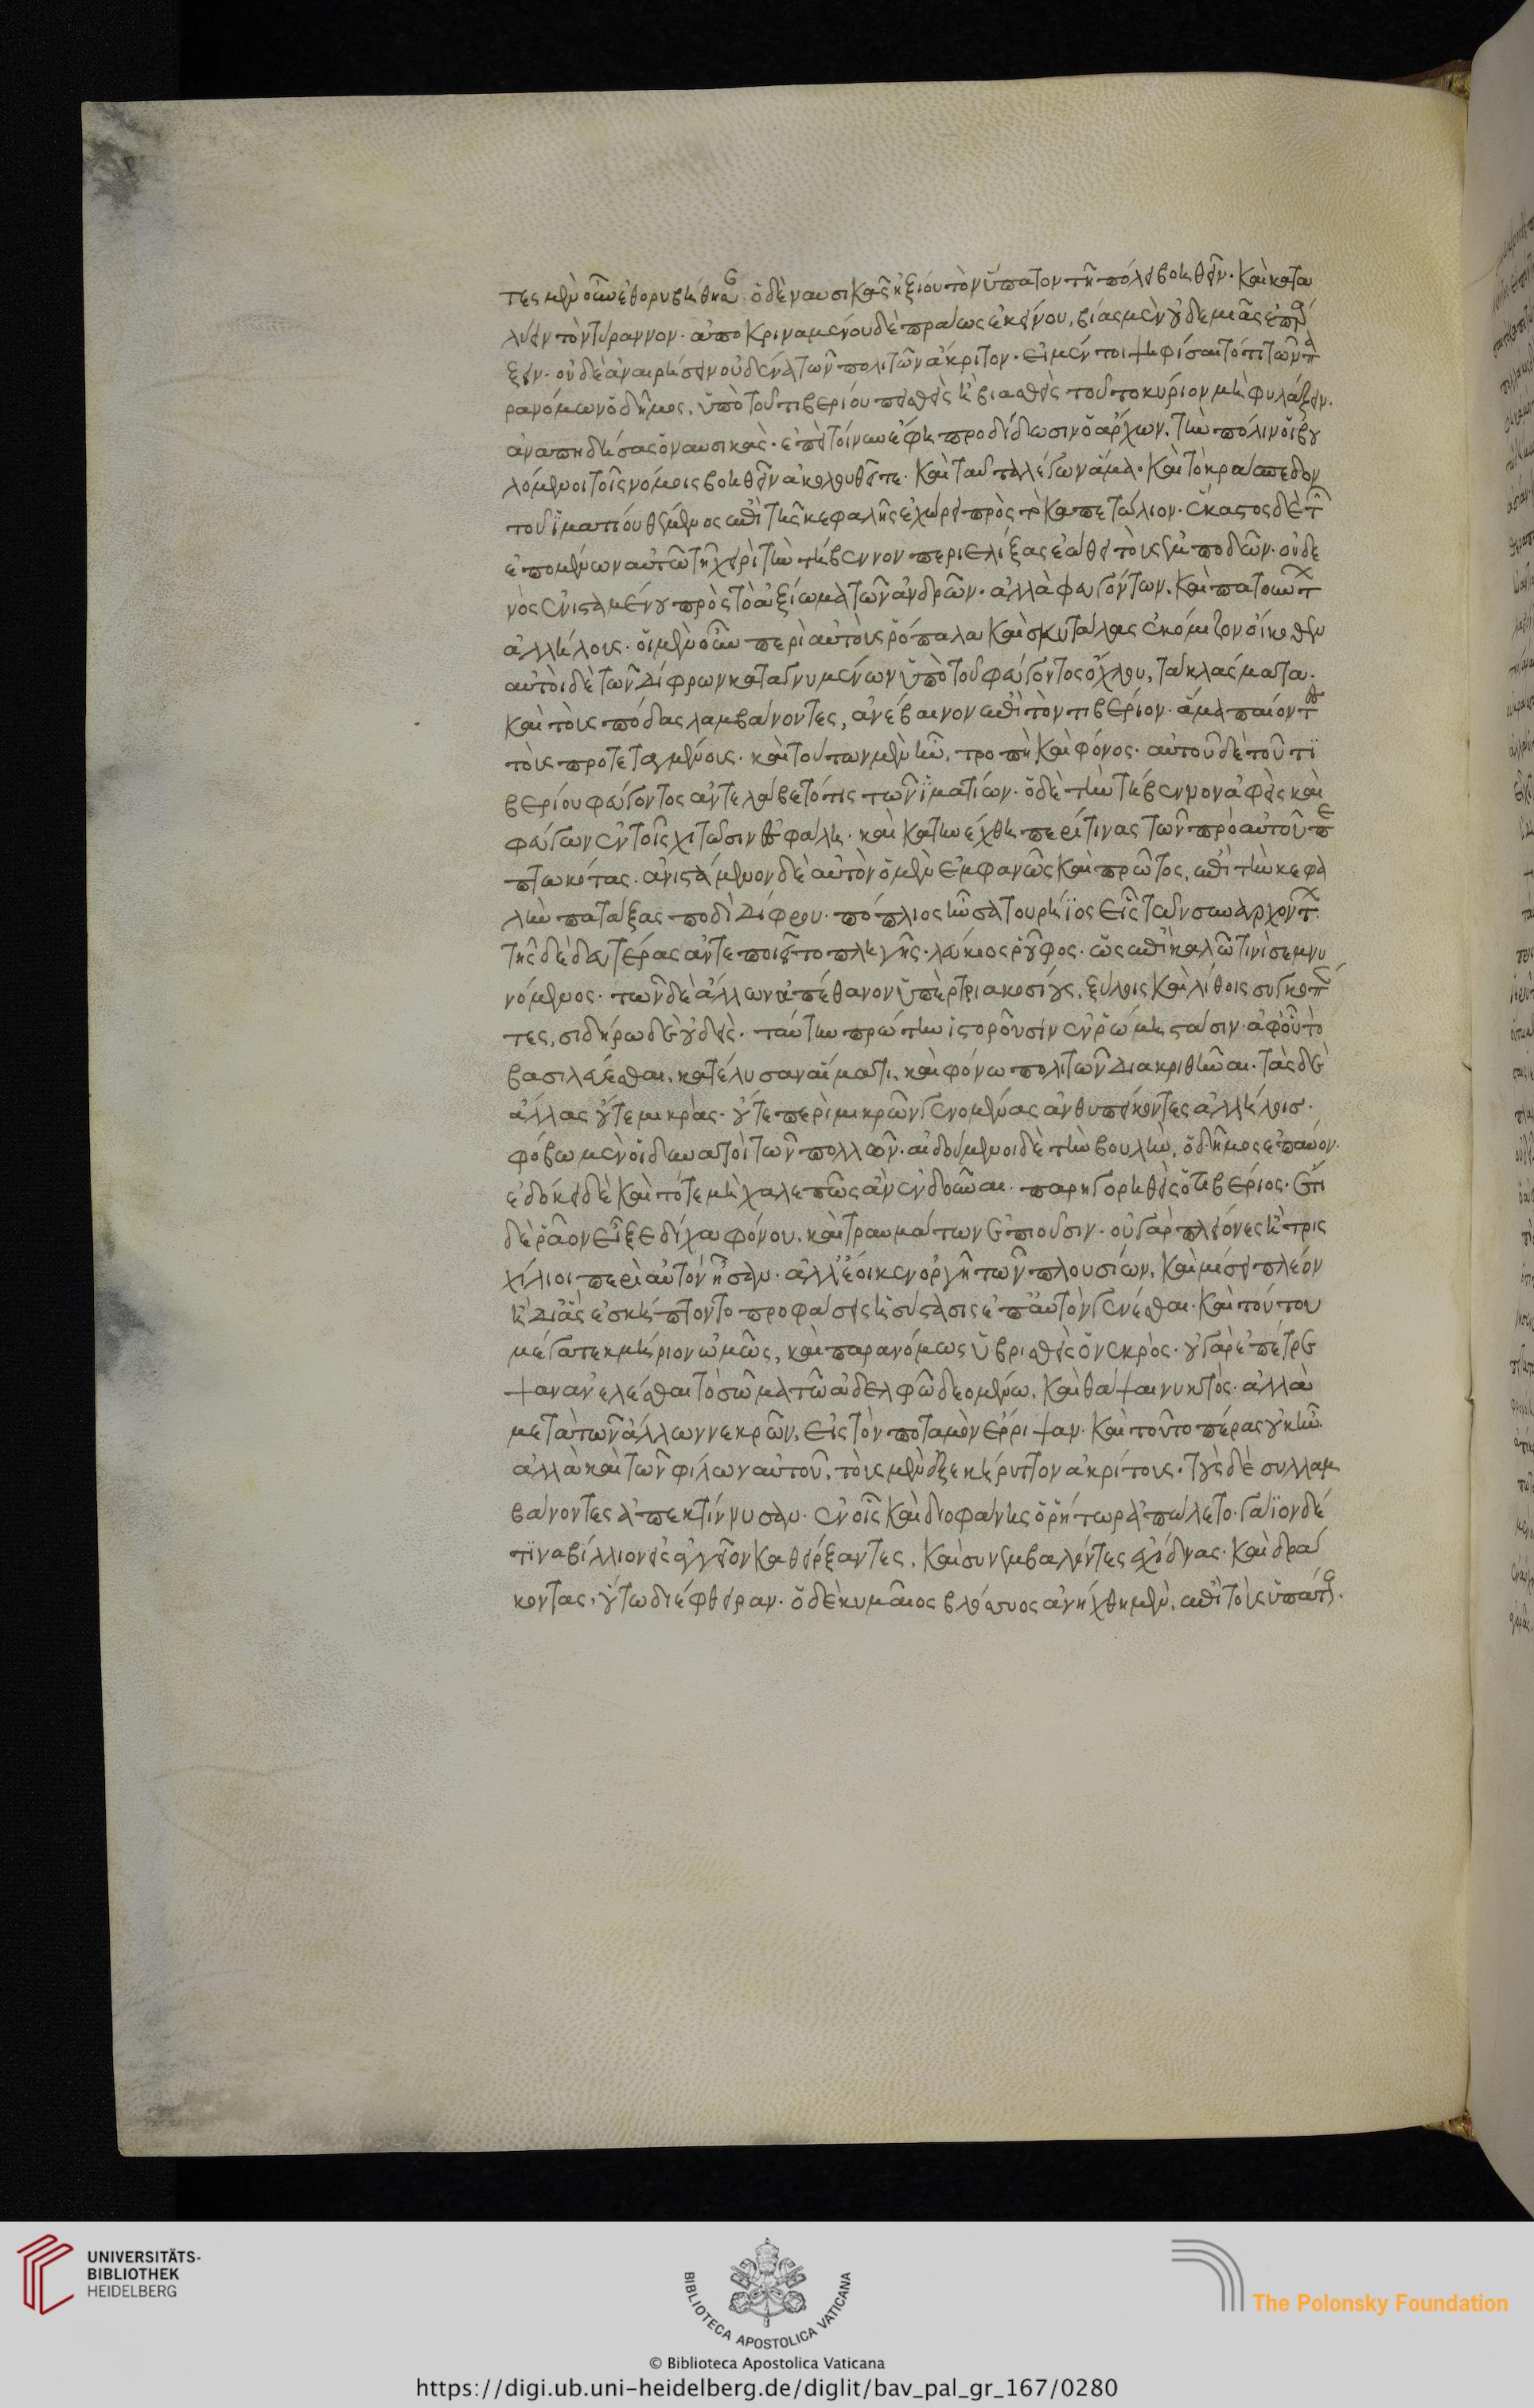 τες μὲν οὖν ἐθορυβήθησαν· ὁ δὲ νασικᾶς ἠξίου τὸν ὕπατον τῇ πόλει βοηθεῖν· καὶ κατα
λύειν τὸν τύραννον· ἀποκριναμένου δὲ πράως ἐκείνου, βίας μὲν οὐδεμιᾶς ὑπάρ
ξειν· οὐδὲ ἀναιρήσειν οὐδένα τῶν πολιτῶν ἄκριτον· εἰ μέντοι ψηφίσαιτό τι τῶν πα
ρανόμων ὁ δῆμος, ὑπὸ τοῦ τιβερίου πεισθεὶς ἢ βιασθεὶς τοῦτο κύριον μὴ φυλάξειν.
ἀναπηδήσας ὁ νασικᾶς· ἐπεὶ τοίνυν ἔφη προδίδωσιν ὁ ἄρχων, τὴν πόλιν οἱ βου
λόμενοι τοῖς νόμοις βοηθεῖν ἀκολουθεῖτε· καὶ ταῦτα λέγων ἅμα· καὶ τὸ κράσπεδον
τοῦ ἱματίου θέμενος ἐπὶ τῆς κεφαλῆς ἐχώρει πρὸς τὸ καπετώλιον· ἕκαστος δὲ τῶν
ἑπομένων αὐτῶ τῇ χειρὶ τὴν τήβεννον περιελίξας ἐώθει τοὺς ἐμποδών· οὐδε
νὸς ἐνισταμένου πρὸς τὸ ἀξίωμα τῶν ἀνδρῶν· ἀλλὰ φευγόντων, καὶ πατούντων
ἀλλήλους· οἱ μὲν οὖν περὶ αὐτοὺς ῥόπαλα καὶ σκυτάλας ἐκόμιζον οἴκοθεν
αὐτοὶ δὲ τῶν δίφρων καταγνυμένων ὑπὸ τοῦ φεύγοντος ὄχλου, τὰ κλάσματα·
καὶ τοὺς πόδας λαμβάνοντες, ἀνέβαινον ἐπὶ τὸν τιβέριον· ἅμα παίοντες
τοὺς προτεταγμένους· καὶ τούτων μὲν ἦν, τροπὴ καὶ φόνος· αὐτοῦ δὲ τοῦ τι
βερίου φεύγοντος ἀντελάβετό τις τῶν ἱματίων· ὁ δὲ τὴν τήβεννον ἀφεὶς καὶ
φεύγων ἐν τοῖς χιτῶσιν ἐσφάλη· καὶ κατηνέχθη περί τινας τῶν πρὸ αὐτοῦ πε
πτωκότας· ἀνιστάμενον δὲ αὐτὸν ὁ μὲν ἐμφανῶς καὶ πρῶτος, ἐπὶ τὴν κεφα
λὴν πατάξας ποδὶ δίφρου· πόπλιος ἦν σατουρήϊος εἷς τῶν συναρχόντων·
τῆς δὲ δευτέρας ἀντεποιεῖτο πληγῆς· λεύκιος ῥοῦφος· ὡς ἐπὶ καλῶ τινὶ σεμνυ
νόμενος· τῶν δὲ ἄλλων ἀπέθανον ὑπὲρ τριακοσίους, ξύλοις καὶ λίθοις συγκοπέν
τες, σιδήρω δὲ οὐδείς· ταύτην πρώτην ἱστοροῦσιν ἐν ῥώμη στάσιν· ἀφ' οὗ τὸ
βασιλεύεσθαι, κατέλυσαν αἵματι, καὶ φόνω πολιτῶν διακριθῆναι· τὰς δὲ
ἄλλας οὔτε μικρὰς· οὔτε περὶ μικρῶν γενομένας ἀνθυπείκοντες ἀλλήλοις·
φόβω μὲν οἱ δυνατοὶ τῶν πολλῶν· αἰδούμενοι δὲ τὴν βουλὴν, ὁ δῆμος ἔπαυον·
ἐδόκει δὲ καὶ τότε μὴ χαλεπῶς ἂν ἐνδοῦναι· παρηγορηθεὶς ὁ τιβέριος· ἔτι
δὲ ῥᾶον εἶξε δίχα φόνου, καὶ τραυμάτων ἐπιοῦσιν· οὐ γὰρ πλείονες ἢ τρις
χίλιοι περὶ αὐτὸν ἦσαν· ἀλλ' ἔοικεν ὀργῇ τῶν πλουσίων, καὶ μίσει πλέον
ἢ δι' ἃς ἐσκήπτοντο προφάσεις ἡ σύστασις ἐπ' αὐτὸν γενέσθαι· καὶ τούτου
μέγα τεκμήριον ὠμῶς, καὶ παρανόμως ὑβρισθεὶς ὁ νεκρὸς· οὐ γὰρ ἐπέτρε
ψαν ἀνελέσθαι τὸ σῶμα τῶ ἀδελφῶ δεομένω, καὶ θάψαι νυκτὸς· ἀλλὰ
μετὰ τῶν ἄλλων νεκρῶν, εἰς τὸν ποταμὸν ἔρριψαν· καὶ τοῦτο πέρας οὐκ ἦν·
ἀλλὰ καὶ τῶν φίλων αὐτοῦ, τοὺς μὲν ἐξεκήρυττον ἀκρίτους· τοὺς δὲ συλλαμ
βάνοντες ἀπεκτίννυσαν· ἐν οἷς καὶ διοφάνης ὁ ῥήτωρ ἀπώλετο· γάϊον δέ
τινα βίλλιον εἰς ἀγγεῖον καθείρξαντες, καὶ συνεμβαλόντες ἐχίδνας· καὶ δρά
κοντας· οὕτω διέφθειραν· ὁ δὲ κυμαῖος βλόσσιος ἀνήχθη μὲν, ἐπὶ τοὺς ὑπάτους·
UNIVERSITÄTS-
BIBLIOTHEK
HEIDELBERG
BIBLIOTECA APOSTOLICA VATICANA
The Polonsky Foundation
© Biblioteca Apostolica Vaticana
https://digi.ub.uni-heidelberg.de/diglit/bav_pal_gr_167/0280